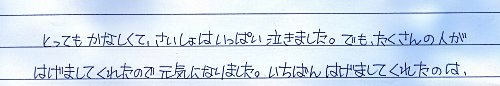 とっても かなしくて、さいしょは いっぱい 泣きました。でも、たくさんの人が
はげましてくれたので 元気になりました。いちばん はげましてくれたのは、